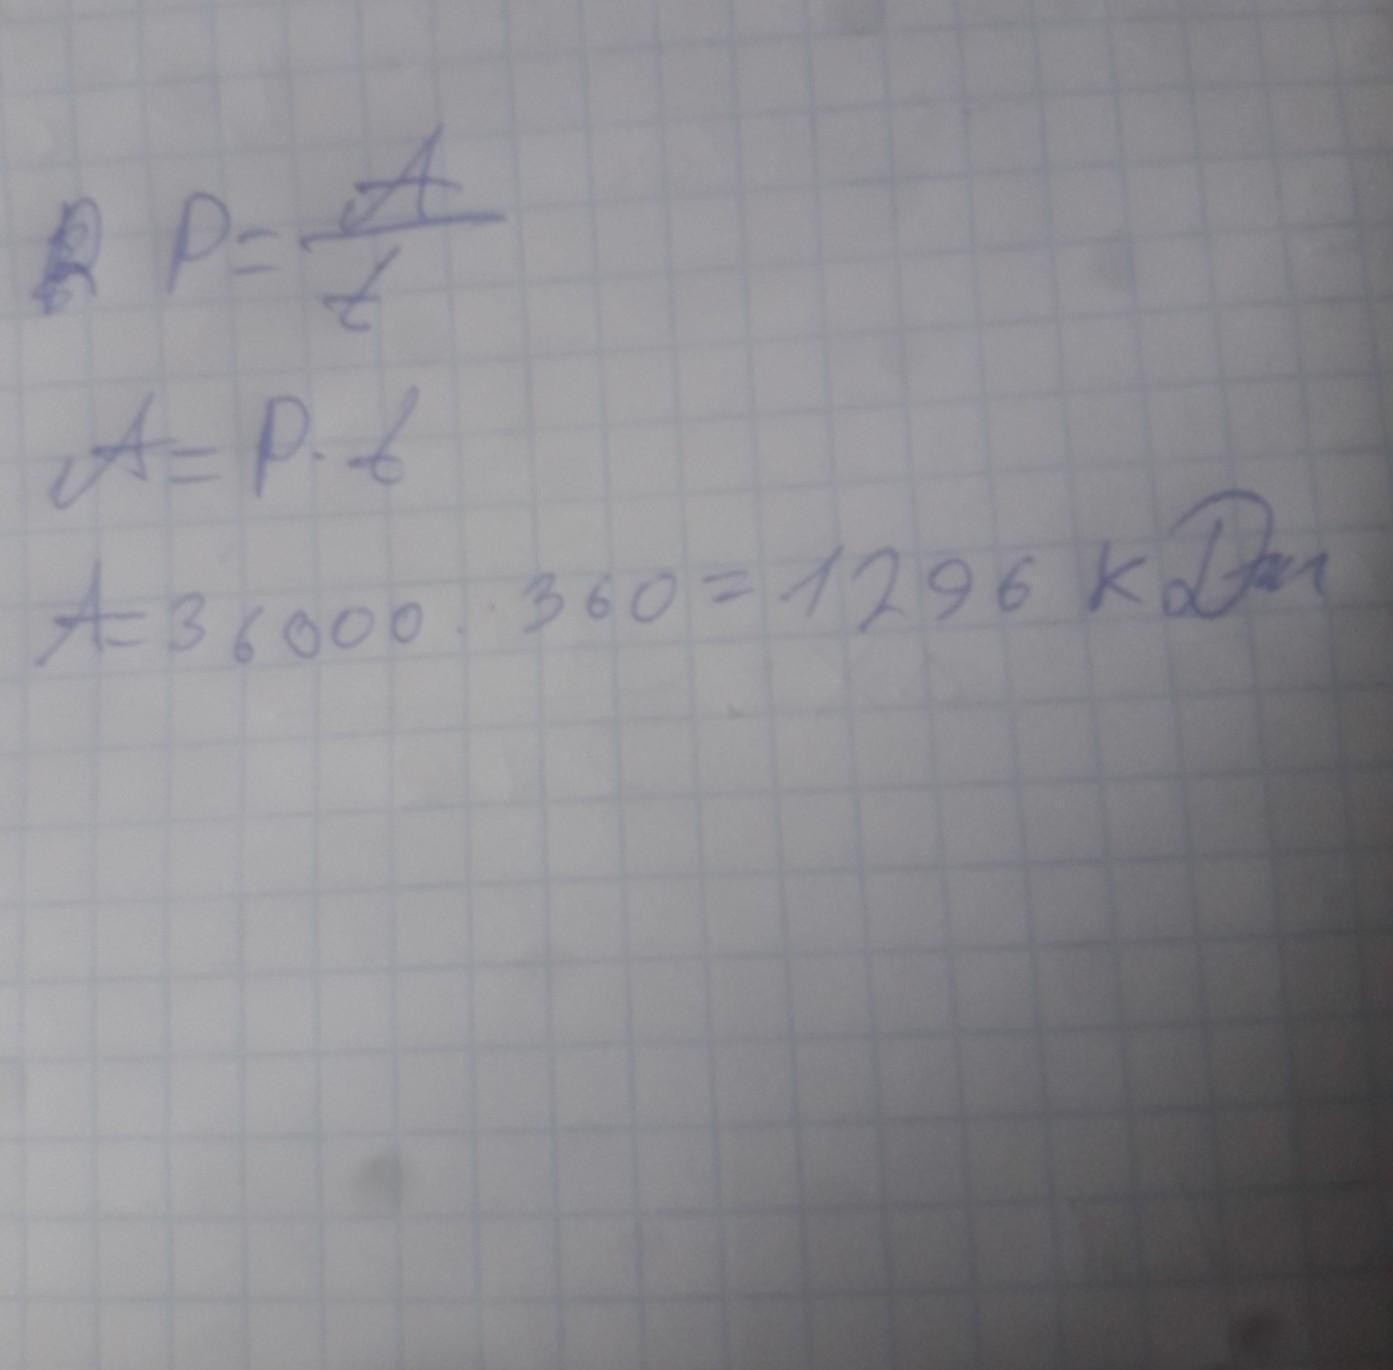 P = A/t
A = P · t
A = 36000 · 360 = 1296 кДж